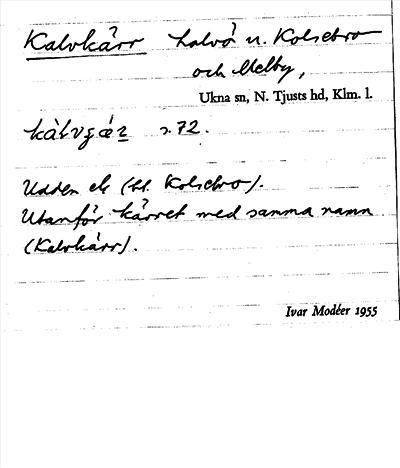 Kalvkärr halvö u. Kolsebro
och Melby,
Ukna sn, N. Tjusts hd, Klm. l.
s. 72.
Udden ek (t. Kolsebro).
Utanför kärret med samma namn
(Kalvkärr).
Ivar Modéer 1955